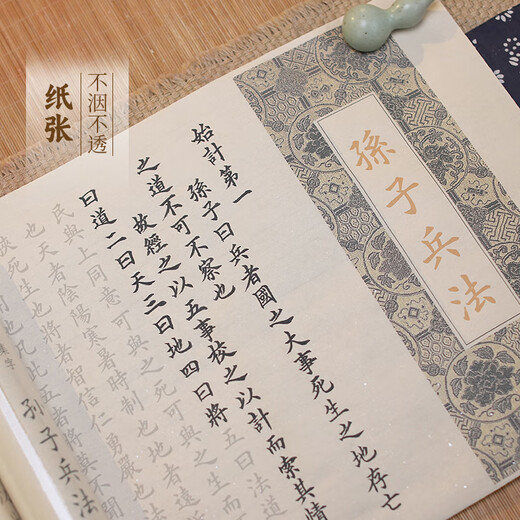 纸张
不洇不透
孫子兵法
始計第一
孫子曰兵者國之大事死生之地存亡
之道不可不察也
故經之以五事校之以計而索其情
曰道二曰天三曰地四曰將五曰法道
民與上同意可與之死可與之生而
也天者陰陽寒暑時制也地者遠
死生也將者智信仁勇嚴也法
凡此五者將莫不聞
孙子兵法